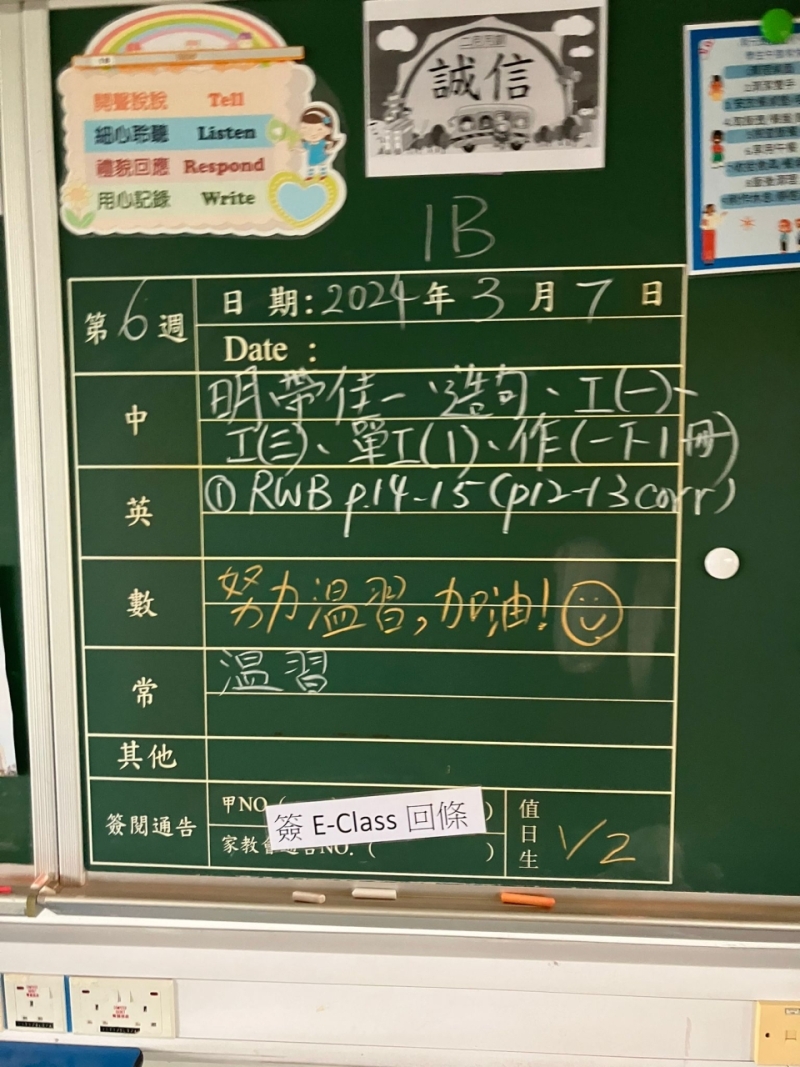 開聲說說 Tell
細心聆聽 Listen
禮貌回應 Respond
用心記錄 Write
誠信
1B
第6週
日期:2024年3月7日
Date :
中
明帶佳一、造句、工(一)、
工(三)、單工(1)、作(一下1冊)
英
① RWB p.14-15 (p12-13 corr)
數
努力溫習,加油!
常
溫習
其他
簽閱通告
甲NO. ( )
簽 E-Class 回條
家教會通告NO. ( )
值日生
1/2